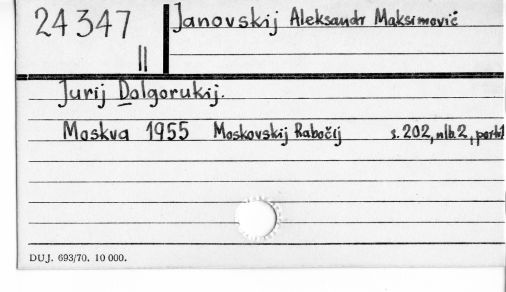 24347
II
Janovskij Aleksandr Maksimovič
Jurij Dolgorukij.
Moskva 1955 Moskovskij Rabočij s. 202, nlb. 2,
DUJ. 693/70. 10 000.